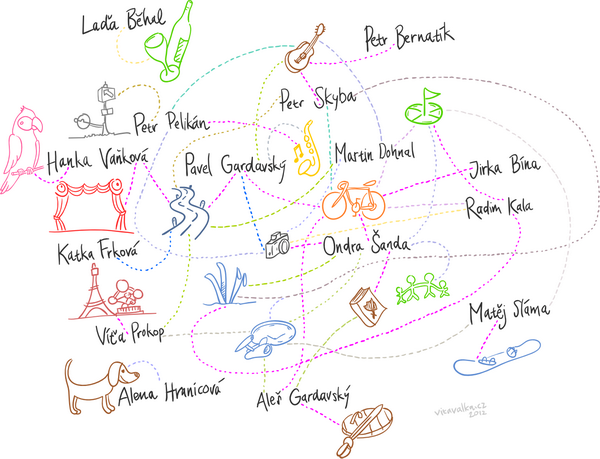 Laďa Běhal
Petr Bernatík
Petr Skyba
Petr Pelikán
Hanka Vaňková
Pavel Gardavský
Martin Dohnal
Jirka Bína
Radim Kala
Katka Frková
Ondra Šanda
Víťa Prokop
Matěj Sláma
Alena Hrunicová
Aleš Gardavský
vitavalka.cz
2012